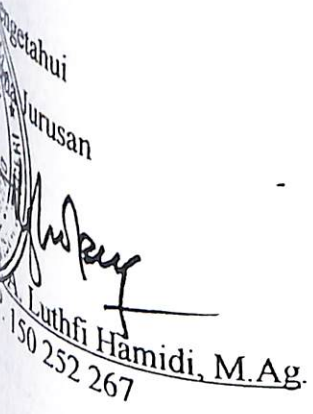 ngetahui
Jurusan
A. Luthfi Hamidi, M.Ag.
. 150 252 267